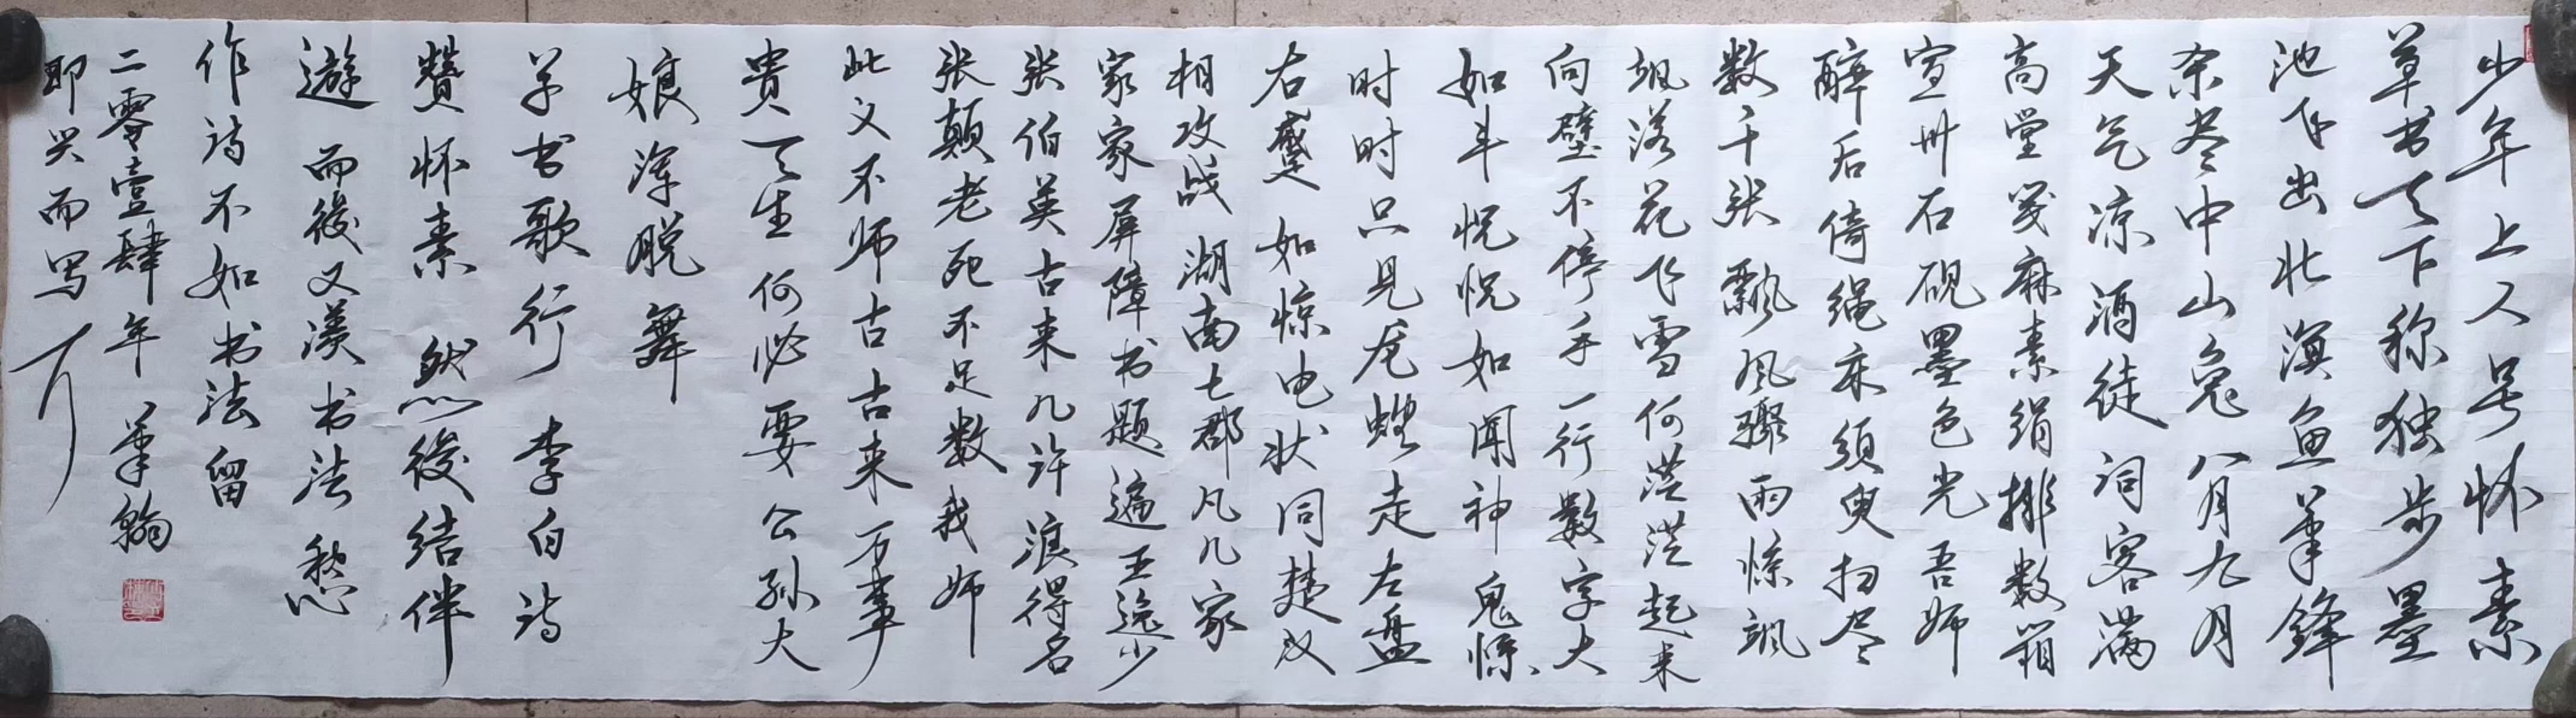 少年上人号怀素
草书天下称独步墨
池飞出北溟鱼笔锋
杀尽中山兔八月九月
天气凉酒徒词客满
高堂笺麻素绢排数箱
宣州石砚墨色光吾师
醉后倚绳床须臾扫尽
数千张飘风骤雨惊飒
飒落花飞雪何茫茫起来
向壁不停手一行数字大
如斗恍恍如闻神鬼惊
时时只见龙蛇走左盘
右蹙如惊电状同楚汉
相攻战湖南七郡凡几家
家家屏障书题遍王逸少
张伯英古来几许浪得名
张颠老死不足数我师
此义不师古古来万事
贵天生何必要公孙大
娘浑脱舞
草书歌行 李白诗
赞怀素 然後结伴
遊而後又漢书法愁
作诗不如书法留
二零壹肆年 笔翰
即兴而写